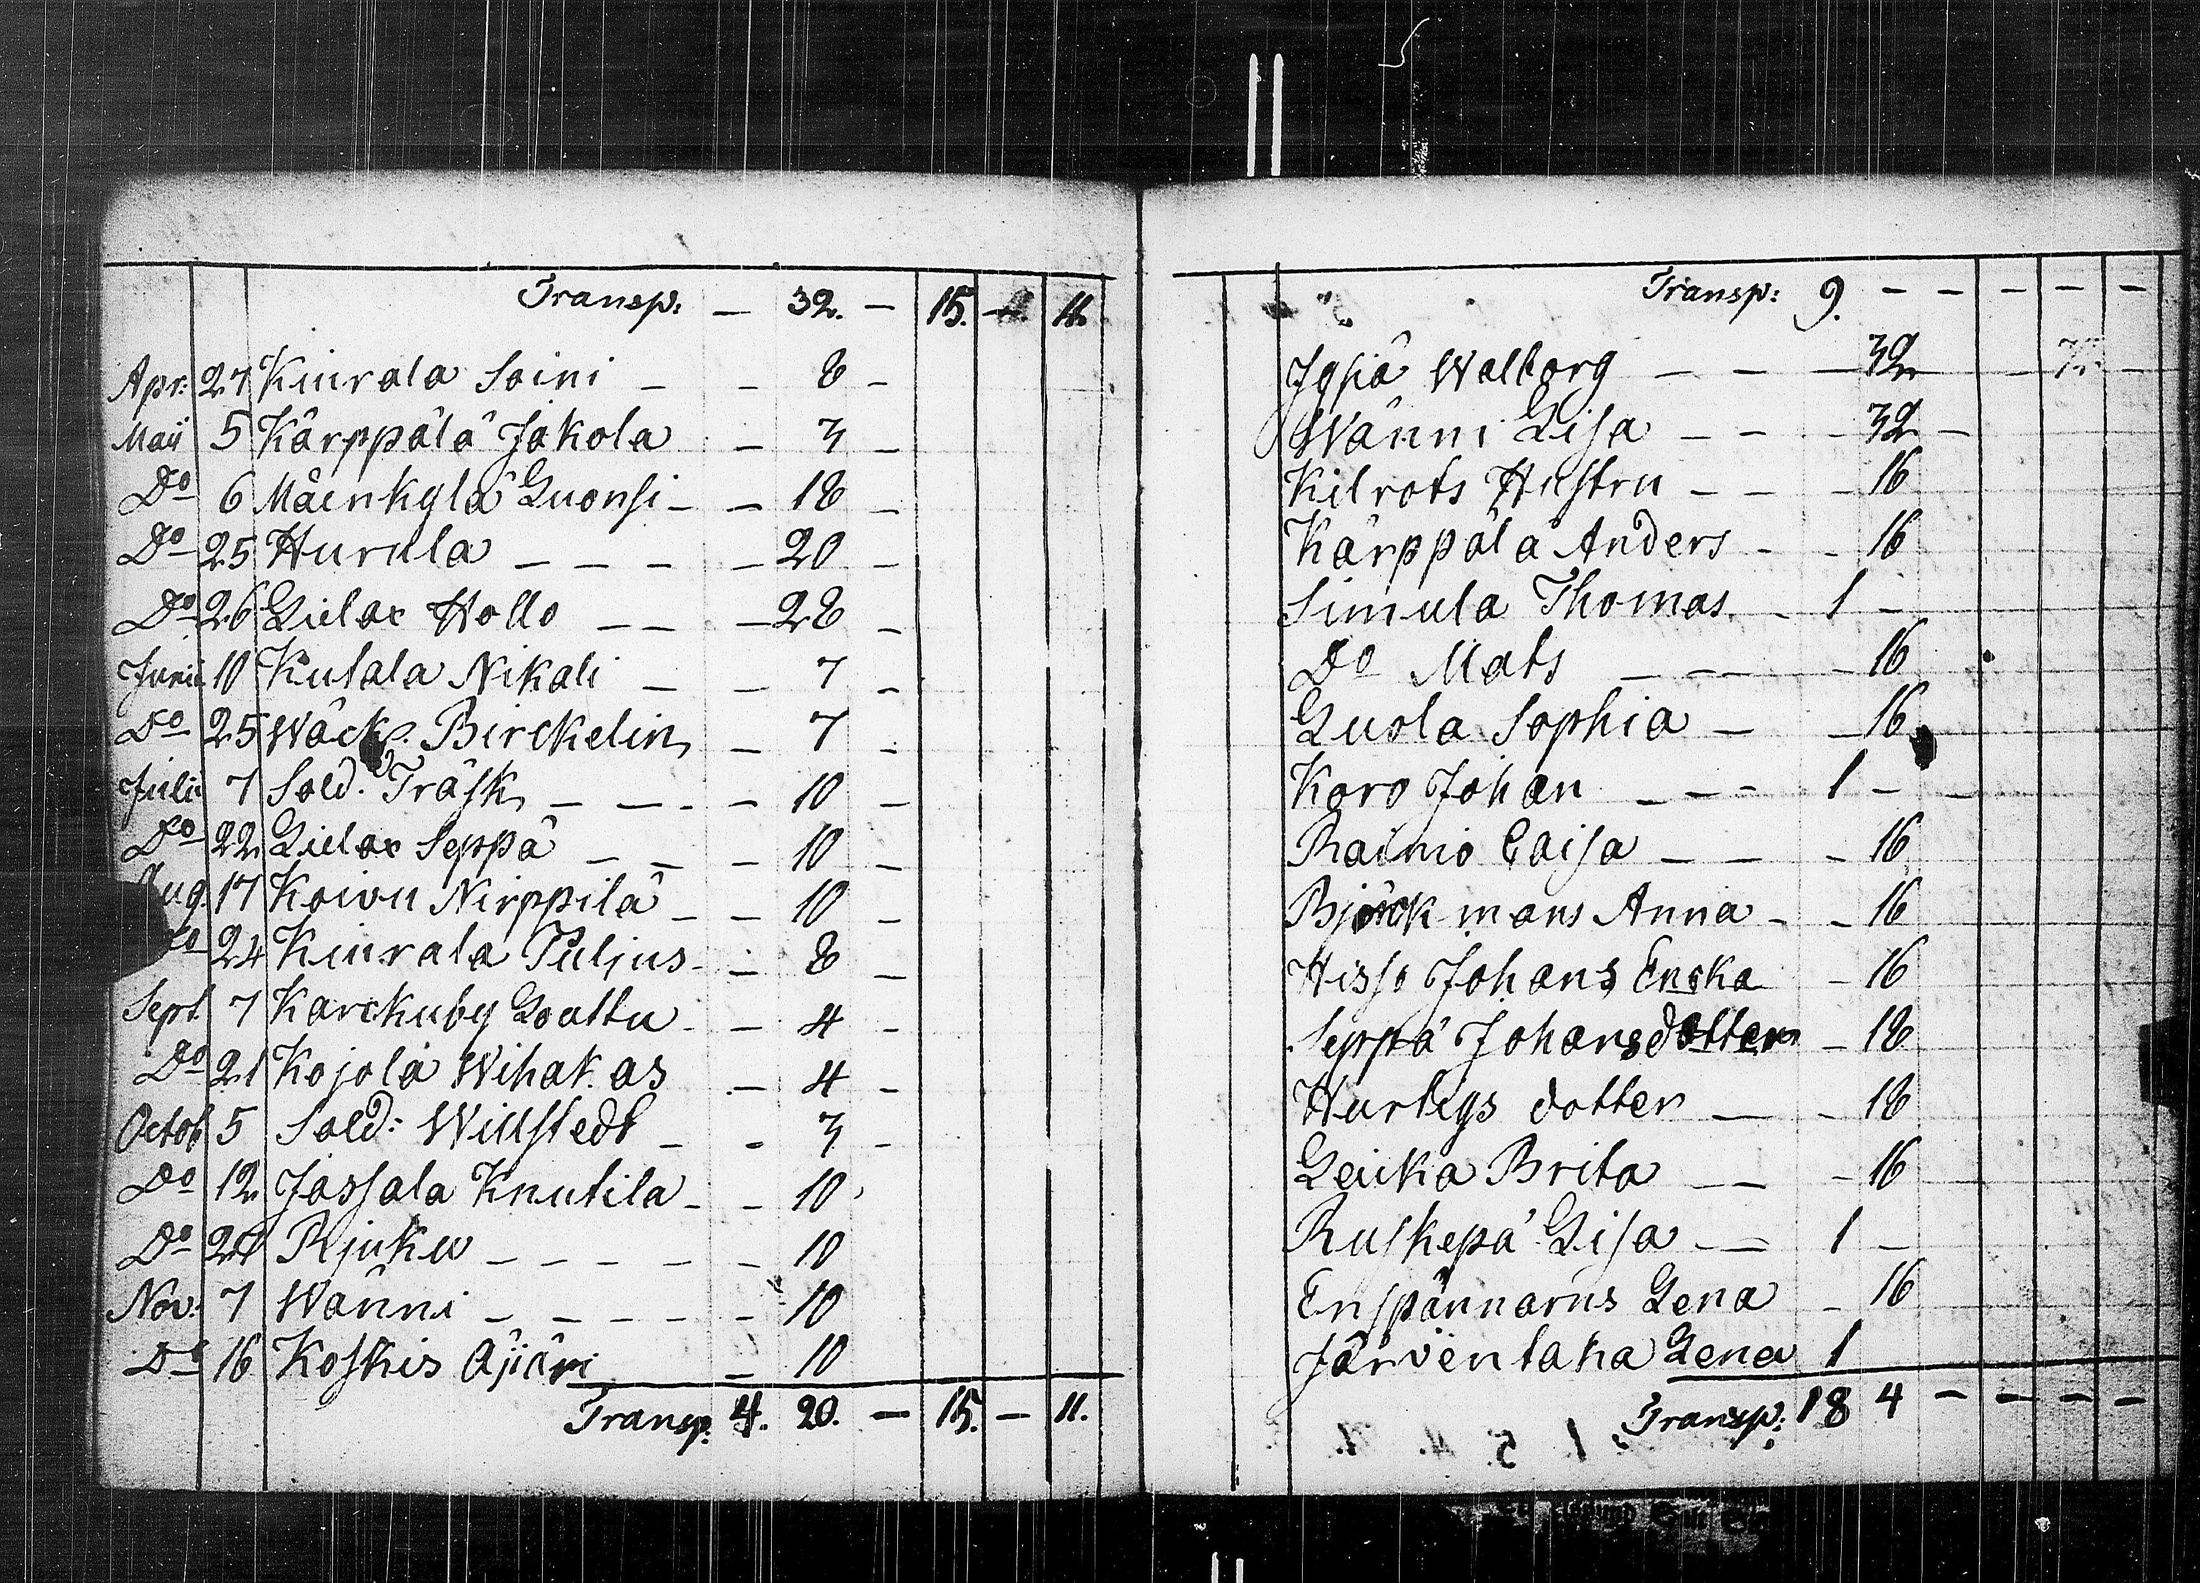 Transp: — 32. — 15. — 11.
Apr: 27 Kiurala Soini — — 8 —
Maij 5 Kärppälä Jakola — 3 —
Do 6 Mäenkylä Luonsi — — 18 —
Do 25 Hurula — — — — — 20 —
Do 26 Lielax Hollo — — — 28 —
Junii 10 Kutala Nikali — — 7 —
Do 25 Wäck. Birckelin — 7 —
Julii 7 Sold. Träsk — — — 10 —
Do 22 Lielax Seppä — — — 10 —
Aug. 17 Koivu Nirppilä — — 10 —
Do 24 Kiurala Puljus — — 8 —
Sept 7 Karckuby Goattu — — 4 —
Do 21 Kojola Wihat.as — 4 —
Octob 5 Sold: Willstedt — — 3 —
Do 12 Jassala Knutila — — 10
Do Rjuku — — — — — 10
Nov: 7 Wänni — — — — — 10
Do 16 Koskis Äijäri — 10
Transp. 4. 20. — 15. — 11.
Transp: 9. — — — — —
Walborg — — — 32
Wänni Lisa — — — 32 —
Kilrots Hustru — — — 16
Kärppälä Anders — — 16
Simula Thomas — 1 —
Do Mats — — — 16
Luola Sophia — — 16
Karo Johan — — — 1 — —
Rainio Caisa — — — 16
Björckmans Anna — — 16
Hisso Johans Encka — 16
Seppä Johansdotter — 18
Hurtigs dotter — — 18
Leicka Brita — — — 16
Ruskepä Lisa — — 1 —
Enspännarns Lena — 16
Järventaka Lena 1
Transp: 18 4 — — — — —